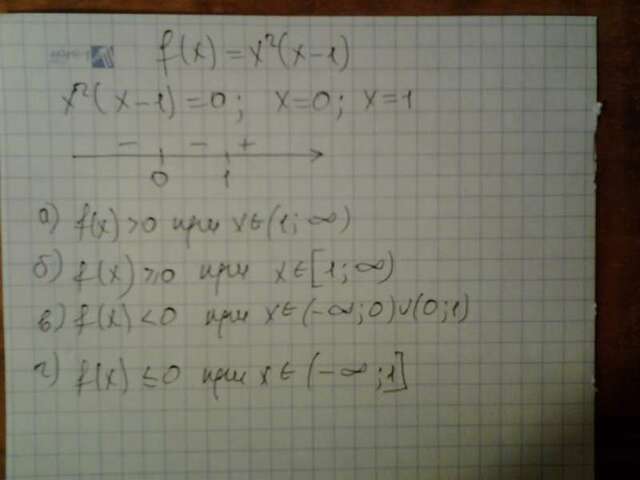 f(x) = x²(x-1)
x²(x-1)=0; x=0; x=1
- - +
0 1
а) f(x) >0 при x∈(1; ∞)
б) f(x) ≥0 при x∈[1; ∞)
в) f(x) <0 при x∈(-∞;0)∪(0;1)
г) f(x) ≤0 при x∈(-∞;1]